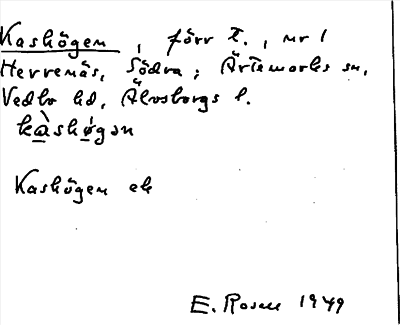 Kashögen, förr t., nr 1
Herrenäs, Södra; Ärtemarks sn,
Vedbo hd, Älvsborgs l.
kàshǿgən
Kashögen ek
E. Rosell 1949